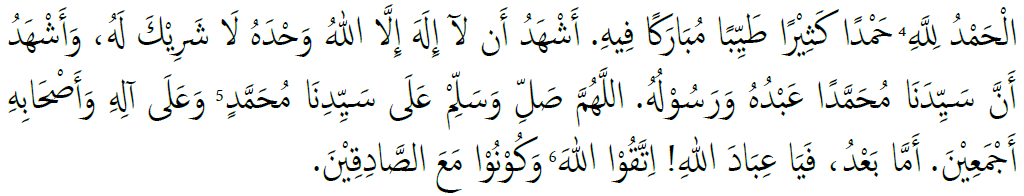 الْحَمْدُ لِلَّهِ⁴ حَمْدًا كَثِيْرًا طَيِّبًا مُبَارَكًا فِيهِ. أَشْهَدُ أَن لآ إِلَهَ إِلَّا اللهُ وَحْدَهُ لَا شَرِيْكَ لَهُ، وَأَشْهَدُ
أَنَّ سَيِّدَنَا مُحَمَّدًا عَبْدُهُ وَرَسُوْلُهُ. اللَّهُمَّ صَلِّ وَسَلِّمْ عَلَى سَيِّدِنَا مُحَمَّدٍ⁵ وَعَلَى آلِهِ وَأَصْحَابِهِ
أَجْمَعِيْنَ. أَمَّا بَعْدُ، فَيَا عِبَادَ اللهِ! اِتَّقُوْا اللهَ⁶ وَكُوْنُوْا مَعَ الصَّادِقِيْنَ.